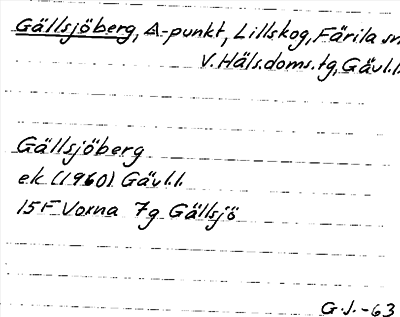 Gällsjöberg, Δ-punkt, Lillskog, Färila sn
V. Häls.doms.tg, Gävl.l.
Gällsjöberg
ek (1960) Gävl.l.
15F Voxna 7g Gällsjö
G.J.-63